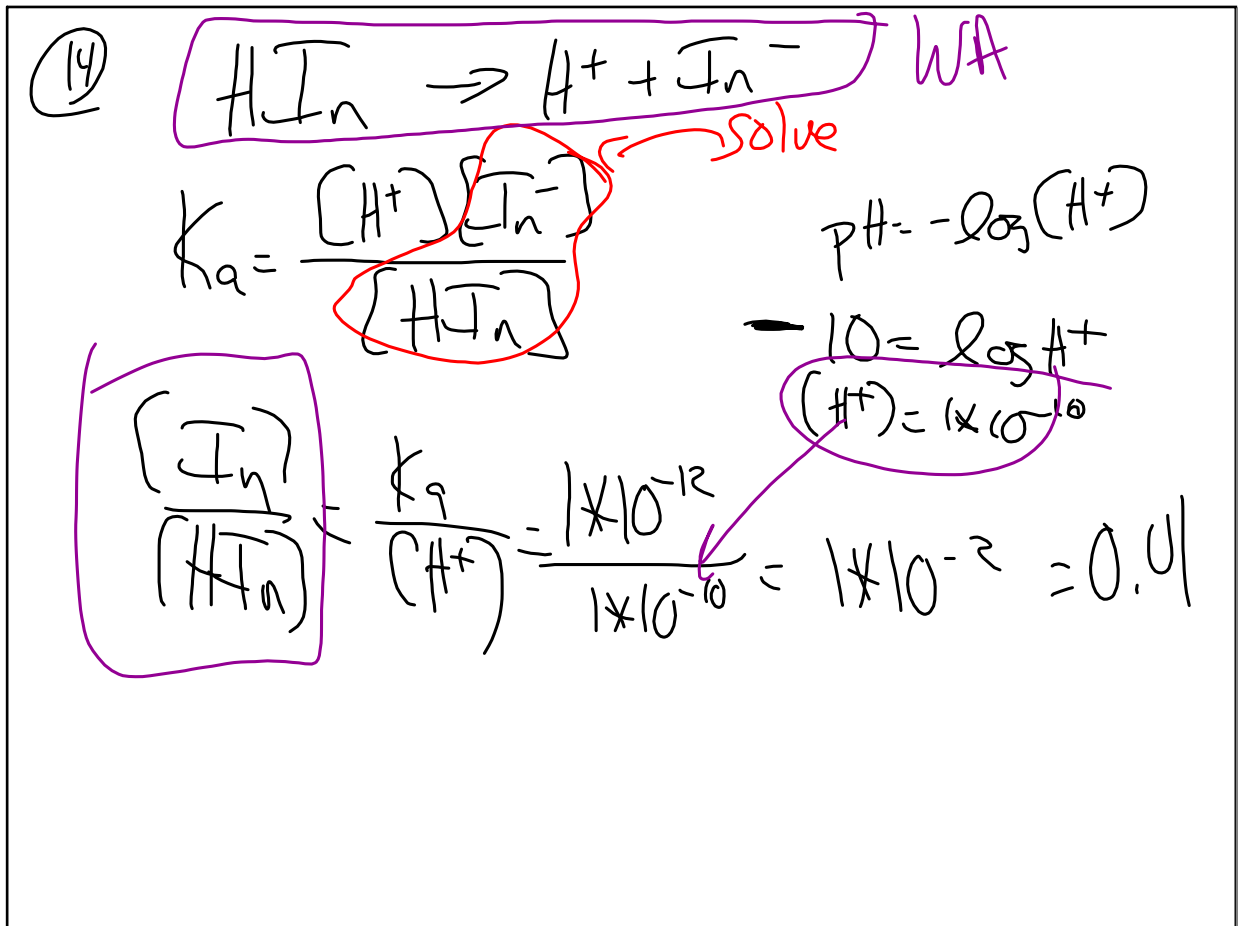 14 HIn → H⁺ + In⁻ WA
solve
Ka = [H⁺][In⁻] / [HIn]
pH = -log(H⁺)
- 10 = log H⁺
(H⁺) = 1×10⁻¹⁰
[In] / [HIn] = Ka / (H⁺) = 1*10⁻¹² / 1*10⁻¹⁰ = 1*10⁻² = 0.01